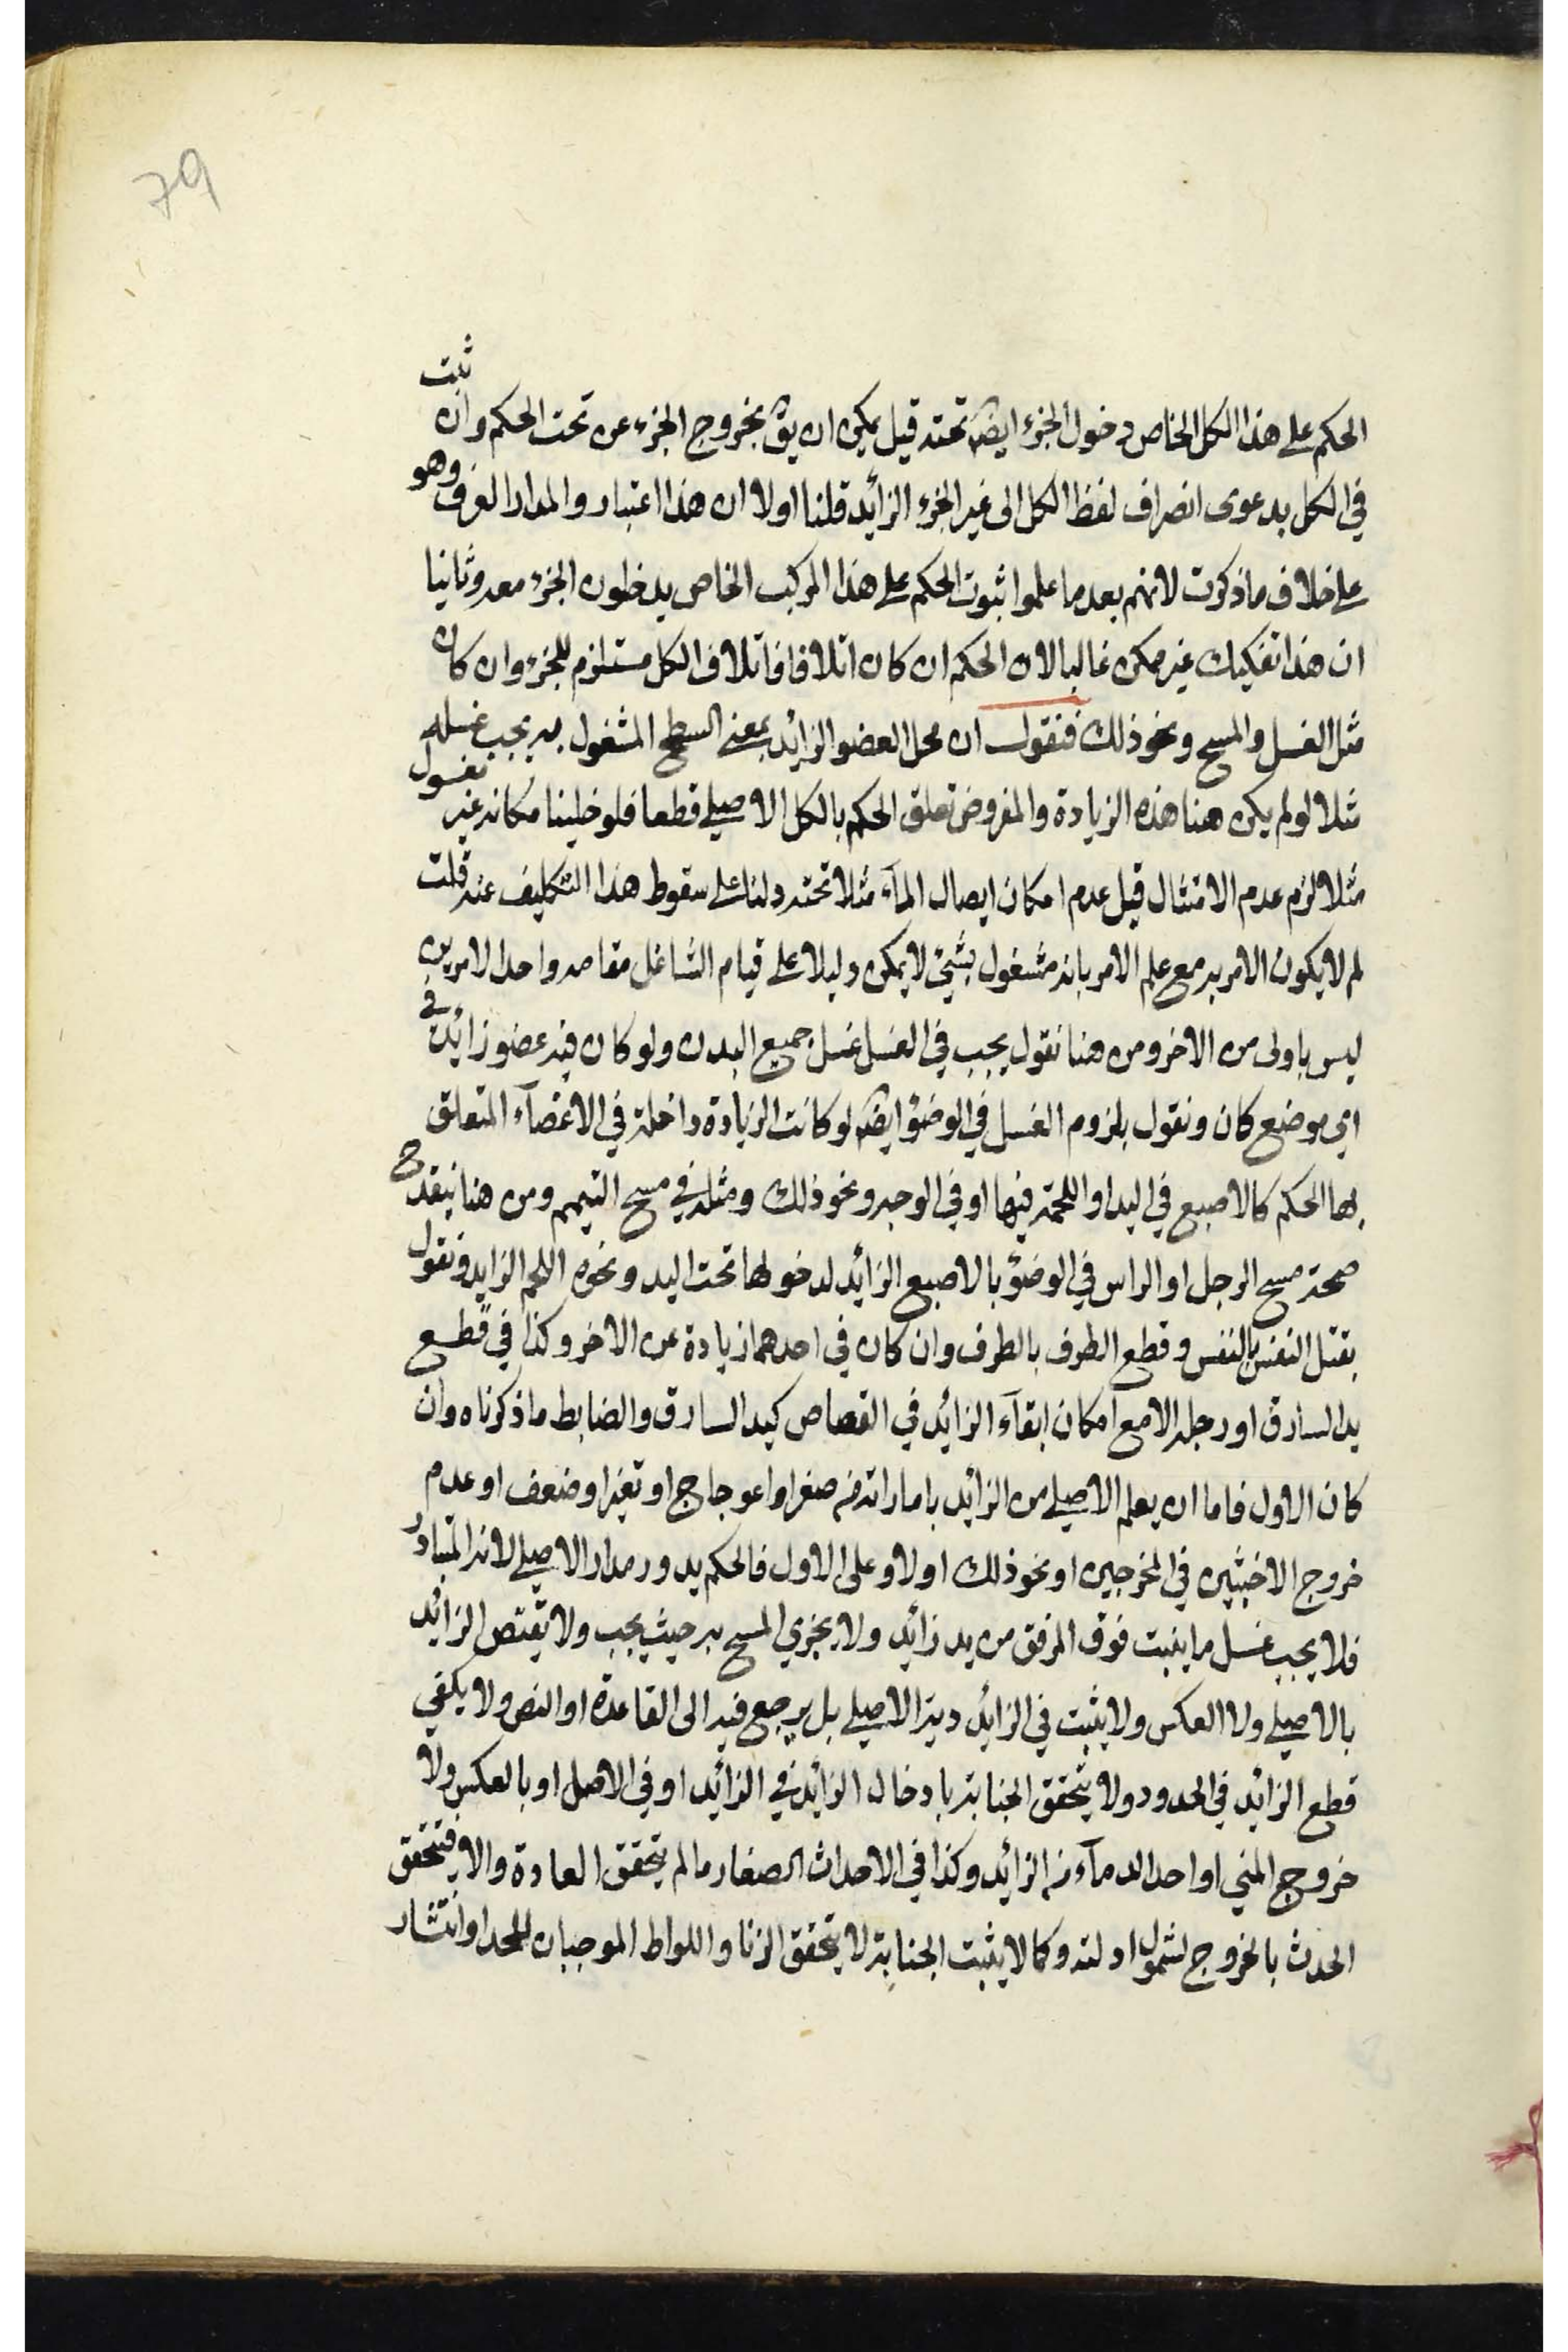 79
الحكم على هذا الكل الخاص دخول الجزء ايضا تحته قيل يمكن ان يق بخروج الجزء عن تحت الحكم وان ثبت
في الكل بدعوى انصراف لفظ الكل الى غير الجزء الزائد قلنا اولا ان هذا اعتبار والمدار العرف وهو
على خلاف ما ذكرت لانهم بعد ما علموا ثبوت الحكم على هذا المركب الخاص يدخلون الجزء معه وثانيا
ان هذا تفكيك غير ممكن غالبا لان الحكم ان كان اتلافا فاتلاف الكل مستلزم للجزء وان كان
مثل الغسل والمسح ونحو ذلك فنقول ان محل العضو الزائد بمعنى السطح المشغول به يجب غسله
مثلا لو لم يكن هنا هذه الزيادة والمفروض تعلق الحكم بالكل الاصيلي قطعا فلو خلينا مكانه غير مغسول
مثلا لزم عدم الامتثال قيل عدم امكان ايصال المآء مثلا تحته دلنا على سقوط هذا التكليف عنه قلت
لم لا يكون الامر به مع علم الامر بانه مشغول بشيئ لا يمكن دليلا على قيام الشاغل مقامه واحد الامرين
ليس باولى من الاخر ومن هنا نقول يجب في الغسل غسل جميع البدن ولو كان فيه عضو زائد في
اي موضع كان ونقول بلزوم الغسل في الوضوء ايضا لو كانت الزيادة داخلة في الاعضآء المتعلق
بها الحكم كالاصبع في اليد او اللحمة فيها او في الوجه ونحو ذلك ومثله في مسح التيمم ومن هنا ينقدح
صحة مسح الرجل او الراس في الوضوء بالاصبع الزائد لدخولها تحت اليد ونحوه اللحم الزايد ونقول
بقتل النفس بالنفس وقطع الطرف بالطرف وان كان في احدهما زيادة عن الاخر وكذا في قطع
يد السارق او رجله الا مع امكان ابقآء الزائد في القصاص كيد السارق والضابط ما ذكرناه وان
كان الاول فاما ان يعلم الاصيلي من الزائد باماراته من صغر او اعوجاج او تغير او ضعف او عدم
خروج الاخبثين في المخرجين او نحو ذلك او لا وعلى الاول فالحكم يدور مدار الاصيلي لانه المتبادر
فلا يجب غسل ما ينبت فوق المرفق من يد زائد ولا يجزي المسح به حيث يجب ولا يقتص الزائد
بالاصيلي ولا العكس ولا يثبت في الزائد دية الاصيلي بل يرجع فيه الى القاعدة او النص ولا يكفي
قطع الزائد في الحدود ولا يتحقق الجنابة بادخال الزائد في الزائد او في الاصل او بالعكس ولا
خروج المني او احد الدمآء من الزائد وكذا في الاحداث الصغار ما لم يتحقق العادة والا فيتحقق
الحدث بالخروج لشمول ادلته وكما لا يثبت الجنابة لا يتحقق الزنا واللواط الموجبان للحد او انتشار